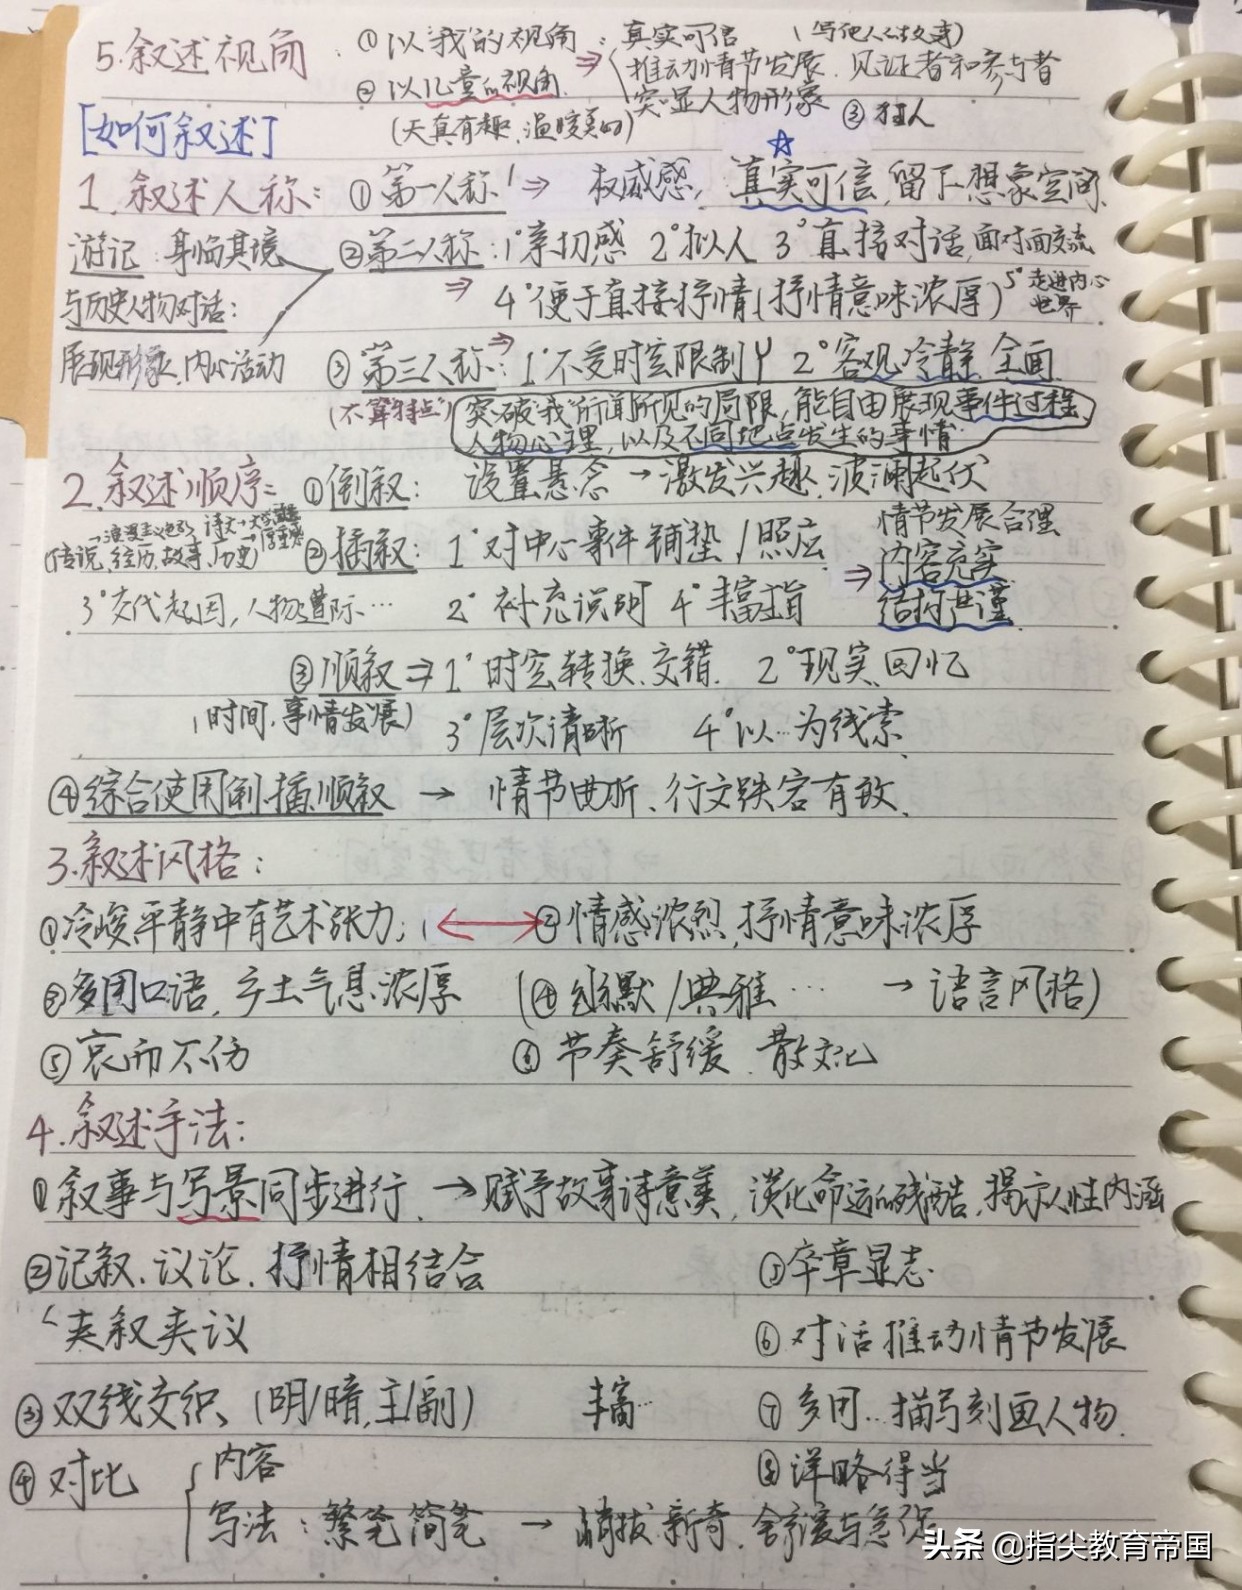 5.叙述视角：①以“我”的视角：真实可信（写他人的故事）
⇒推动情节发展、见证者和参与者
②以儿童的视角 突显人物形象 ③狂人
(天真有趣,温暖美好)
[如何叙述]
☆
1.叙述人称：①第一人称 ⇒ 权威感，真实可信,留下想象空间、
游记：身临其境 ②第二人称：1°亲切感 2°拟人 3°直接对话,面对面交流
⇒ 4°便于直接抒情(抒情意味浓厚) 5°走进内心世界
与历史人物对话：
展现形象、内心活动 ③第三人称：⇒1°不受时空限制 2°客观冷静、全面
(不算特点) 突破“我”所闻所见的局限,能自由展现事件过程、
人物心理,以及不同地点发生的事情
2.叙述顺序：①倒叙：设置悬念→激发兴趣,波澜起伏
(传说、经历、故事、历史) ②插叙：1°对中心事件铺垫/照应 ⇒情节发展合理
内容充实
3°交代起因,人物遭际… 2°补充说明 4°丰富主旨 结构严谨
③顺叙⇒1°时空转换、交错. 2°现实、回忆
(时间、事情发展) 3°层次清晰 4°以…为线索
④综合使用倒、插、顺叙 → 情节曲折、行文跌宕有致、
3.叙述风格：
①冷峻平静中有艺术张力； ②情感浓烈,抒情意味浓厚
③多用口语，乡土气息浓厚 (④幽默/典雅… → 语言风格)
⑤哀而不伤 ⑥节奏舒缓、散文化
4.叙述手法：
①叙事与写景同步进行、→赋予故事诗意美,淡化命运的残酷,揭示人性内涵
②记叙、议论、抒情相结合 ⑤卒章显志
夹叙夹议 ⑥对话推动情节发展
③双线交织、(明/暗,主/副) 丰富… ⑦多用…描写刻画人物.
④对比 内容 ⑧详略得当
写法：繁笔简笔 → 峭拔新奇、舒缓与急
头条 @指尖教育帝国